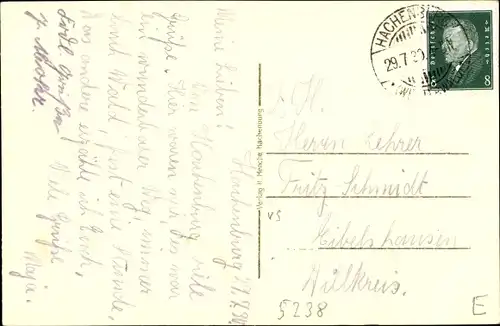 Hachenburg 29.7.30
Meine Lieben!
Von Hachenburg viele
Grüße. Hier waren wir, es war
ein wunderbarer Weg, immer
durch Wald, fast eine Stunde,
das andere erzähle ich Euch,
Viele Grüße
Maja.
Herzl. Grüße
Verlag H. Hensche Hachenburg
HACHENBURG
29.7.30
Deutsches Reich
8
Herrn Lehrer
Fritz Schmidt
Eibelshausen
Dillkreis.
VS
5238
E